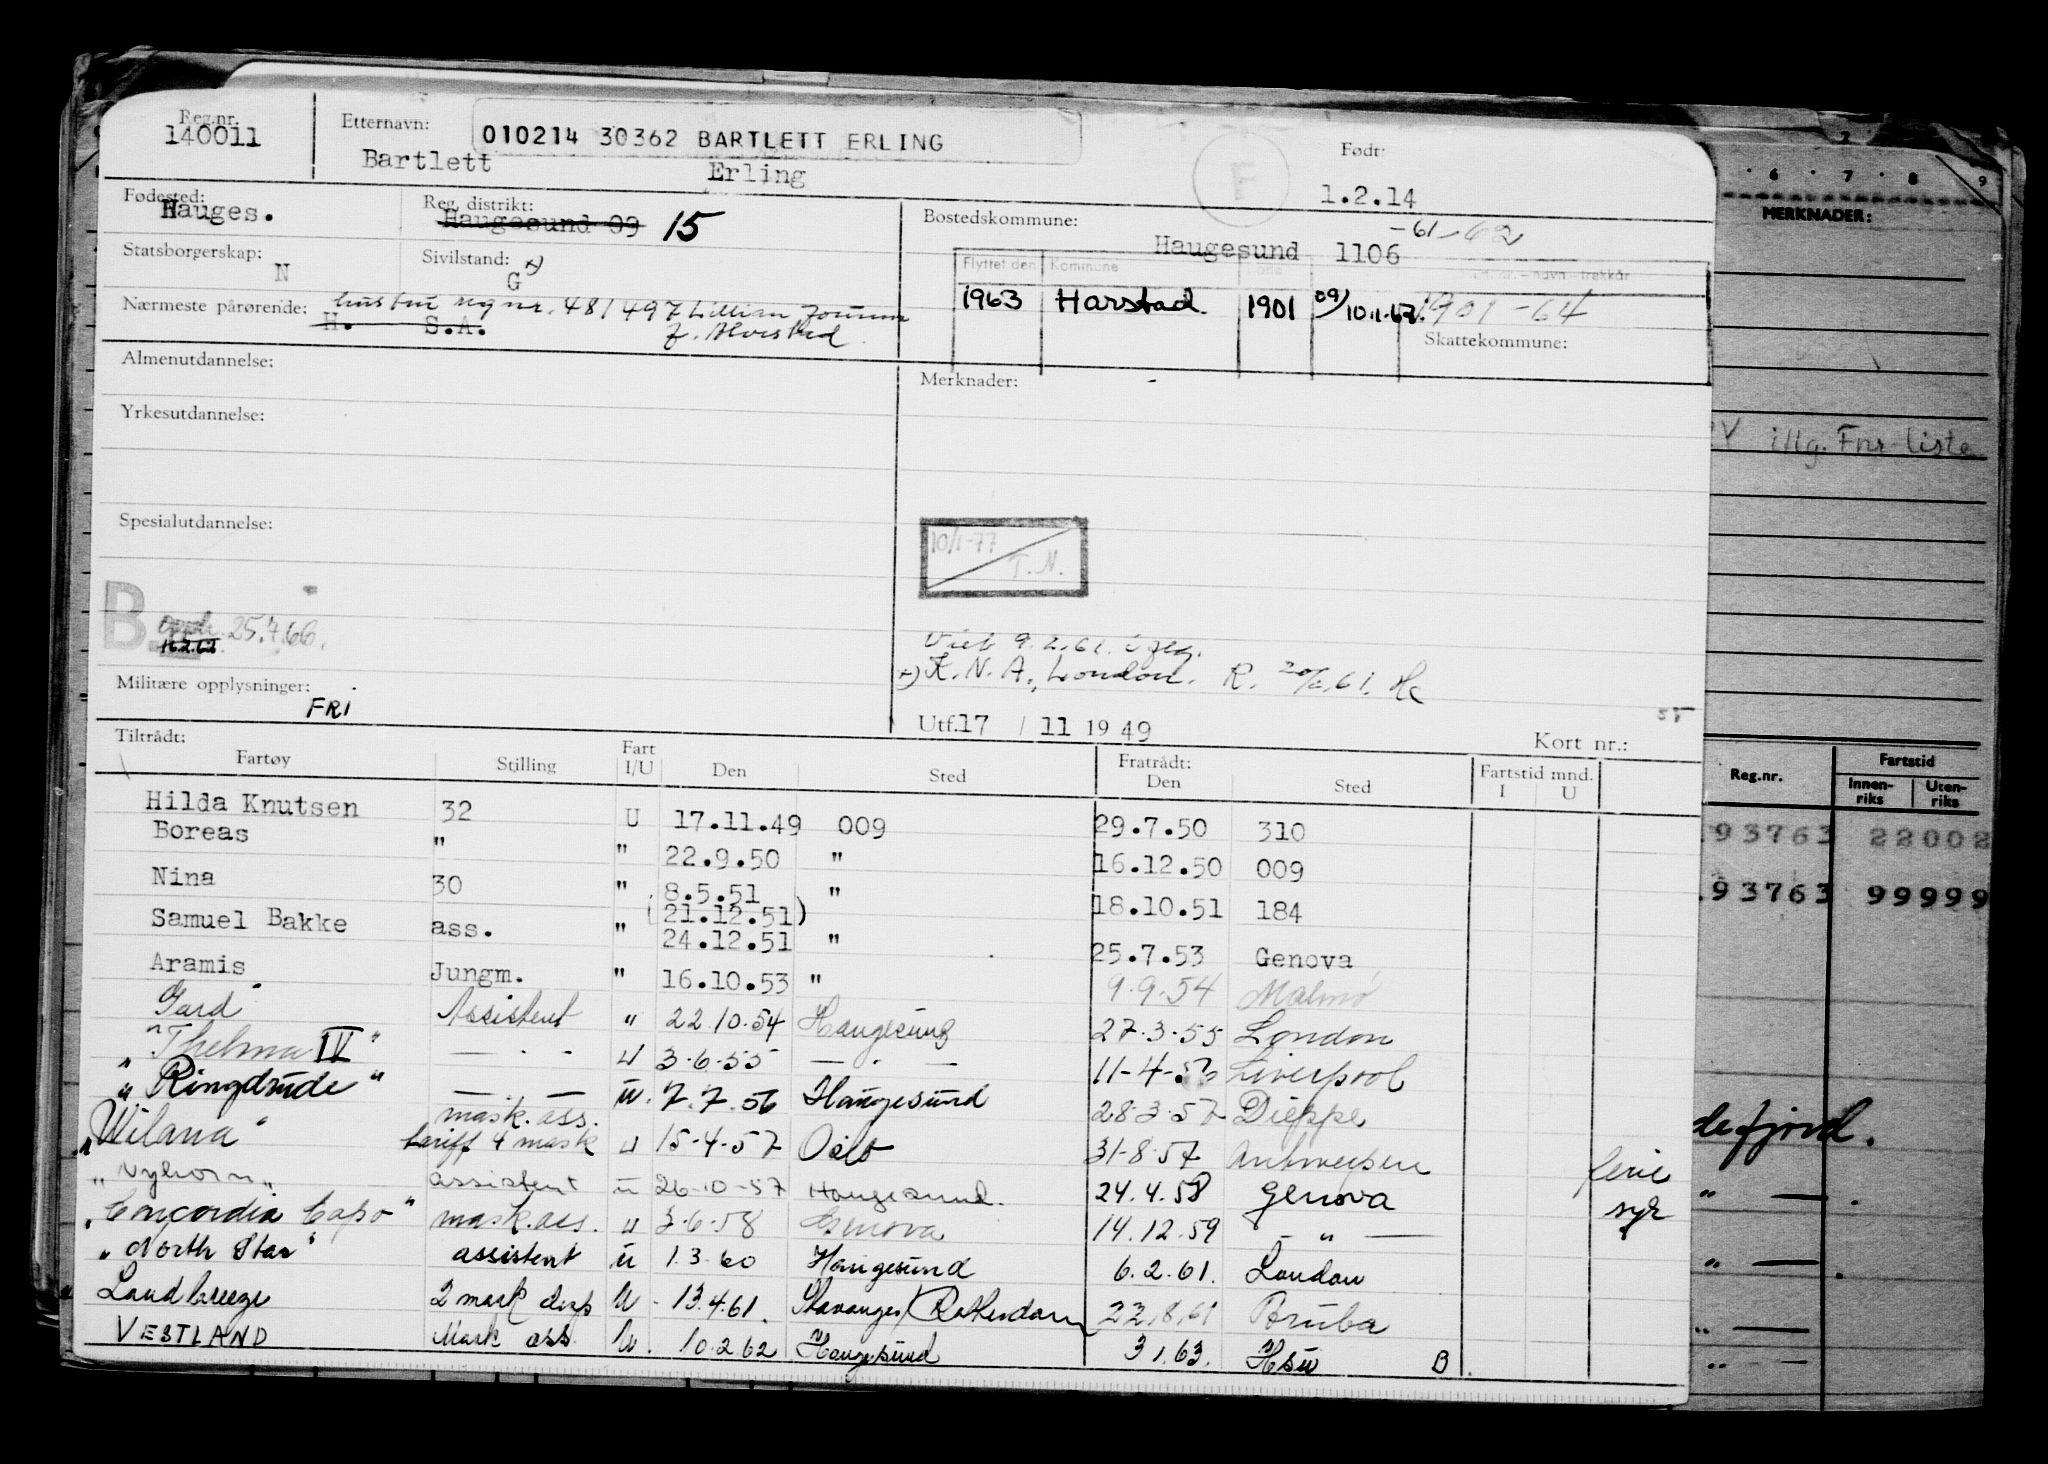 Reg.nr. 140011
Etternavn: 010214 30362 BARTLETT ERLING
Bartlett Erling
F
Født: 1.2.14
Fødested: Hauges.
Reg. distrikt: Haugesund 09 15
Bostedskommune: Haugesund 1106 -61-62
Statsborgerskap: N
Sivilstand: G x)
Flyttet den Kommune
1963 Harstad. 1901 1901-64
Nærmeste pårørende: hustru reg nr. 481497 Lillian
H. S.A.
Skattekommune:
Almenutdannelse:
Merknader:
Yrkesutdannelse:
Spesialutdannelse:
10/1-77
T.N.
B 25.7.66.
9.2.61.
x) K.N.A., London. R.
Militære opplysninger: FRI
Utf. 17 / 11 19 49
Kort nr.:
Tiltrådt: Fratrådt:
Fartøy Stilling Fart I/U Den Sted Den Sted Fartstid mnd. I U
Hilda Knutsen 32 U 17.11.49 009 29.7.50 310
Boreas " " 22.9.50 " 16.12.50 009
Nina 30 " 8.5.51 " 18.10.51 184
(21.12.51)
Samuel Bakke ass. " 24.12.51 " 25.7.53 Genova
Aramis Jungm. " 16.10.53 " 9.9.54 Malmø
Gard" Assistent " 22.10.54 Haugesund 27.3.55 London
"Thelma IV" — " — u 3.6.55 — " — 11-4-56 Liverpool
"Ringdrude" — — u. 7.7.56 Haugesund 28.3.57 Dieppe
"Wilana" mask. ass. tariff 4 mask u 15-4-57 Oslo 31-8-57 Antwerpen ferie
"Nyhorn" assistent u 26-10-57 Haugesund. 24.4.58 Genova syk
"Concordia Capo" mask. ass. u 3-6-58 Genova 14.12.59 — " —
"North Star" assistent u 1.3.60 Haugesund 6.2.61. London
Landbreeze 2 mask disp U - 13.4.61. Stavanger/Rotterdam 22.8.61 Bruba
VESTLAND Mask ass. U. 10.2.62 Haugesund 3 1.63. Hsu B.
6 7 8 9
MERKNADER:
illg. Fnr liste
Reg.nr. Fartstid
Innenriks Utenriks
93763 22002
93763 99999
defjord.
" — .
" — .
" —
" —